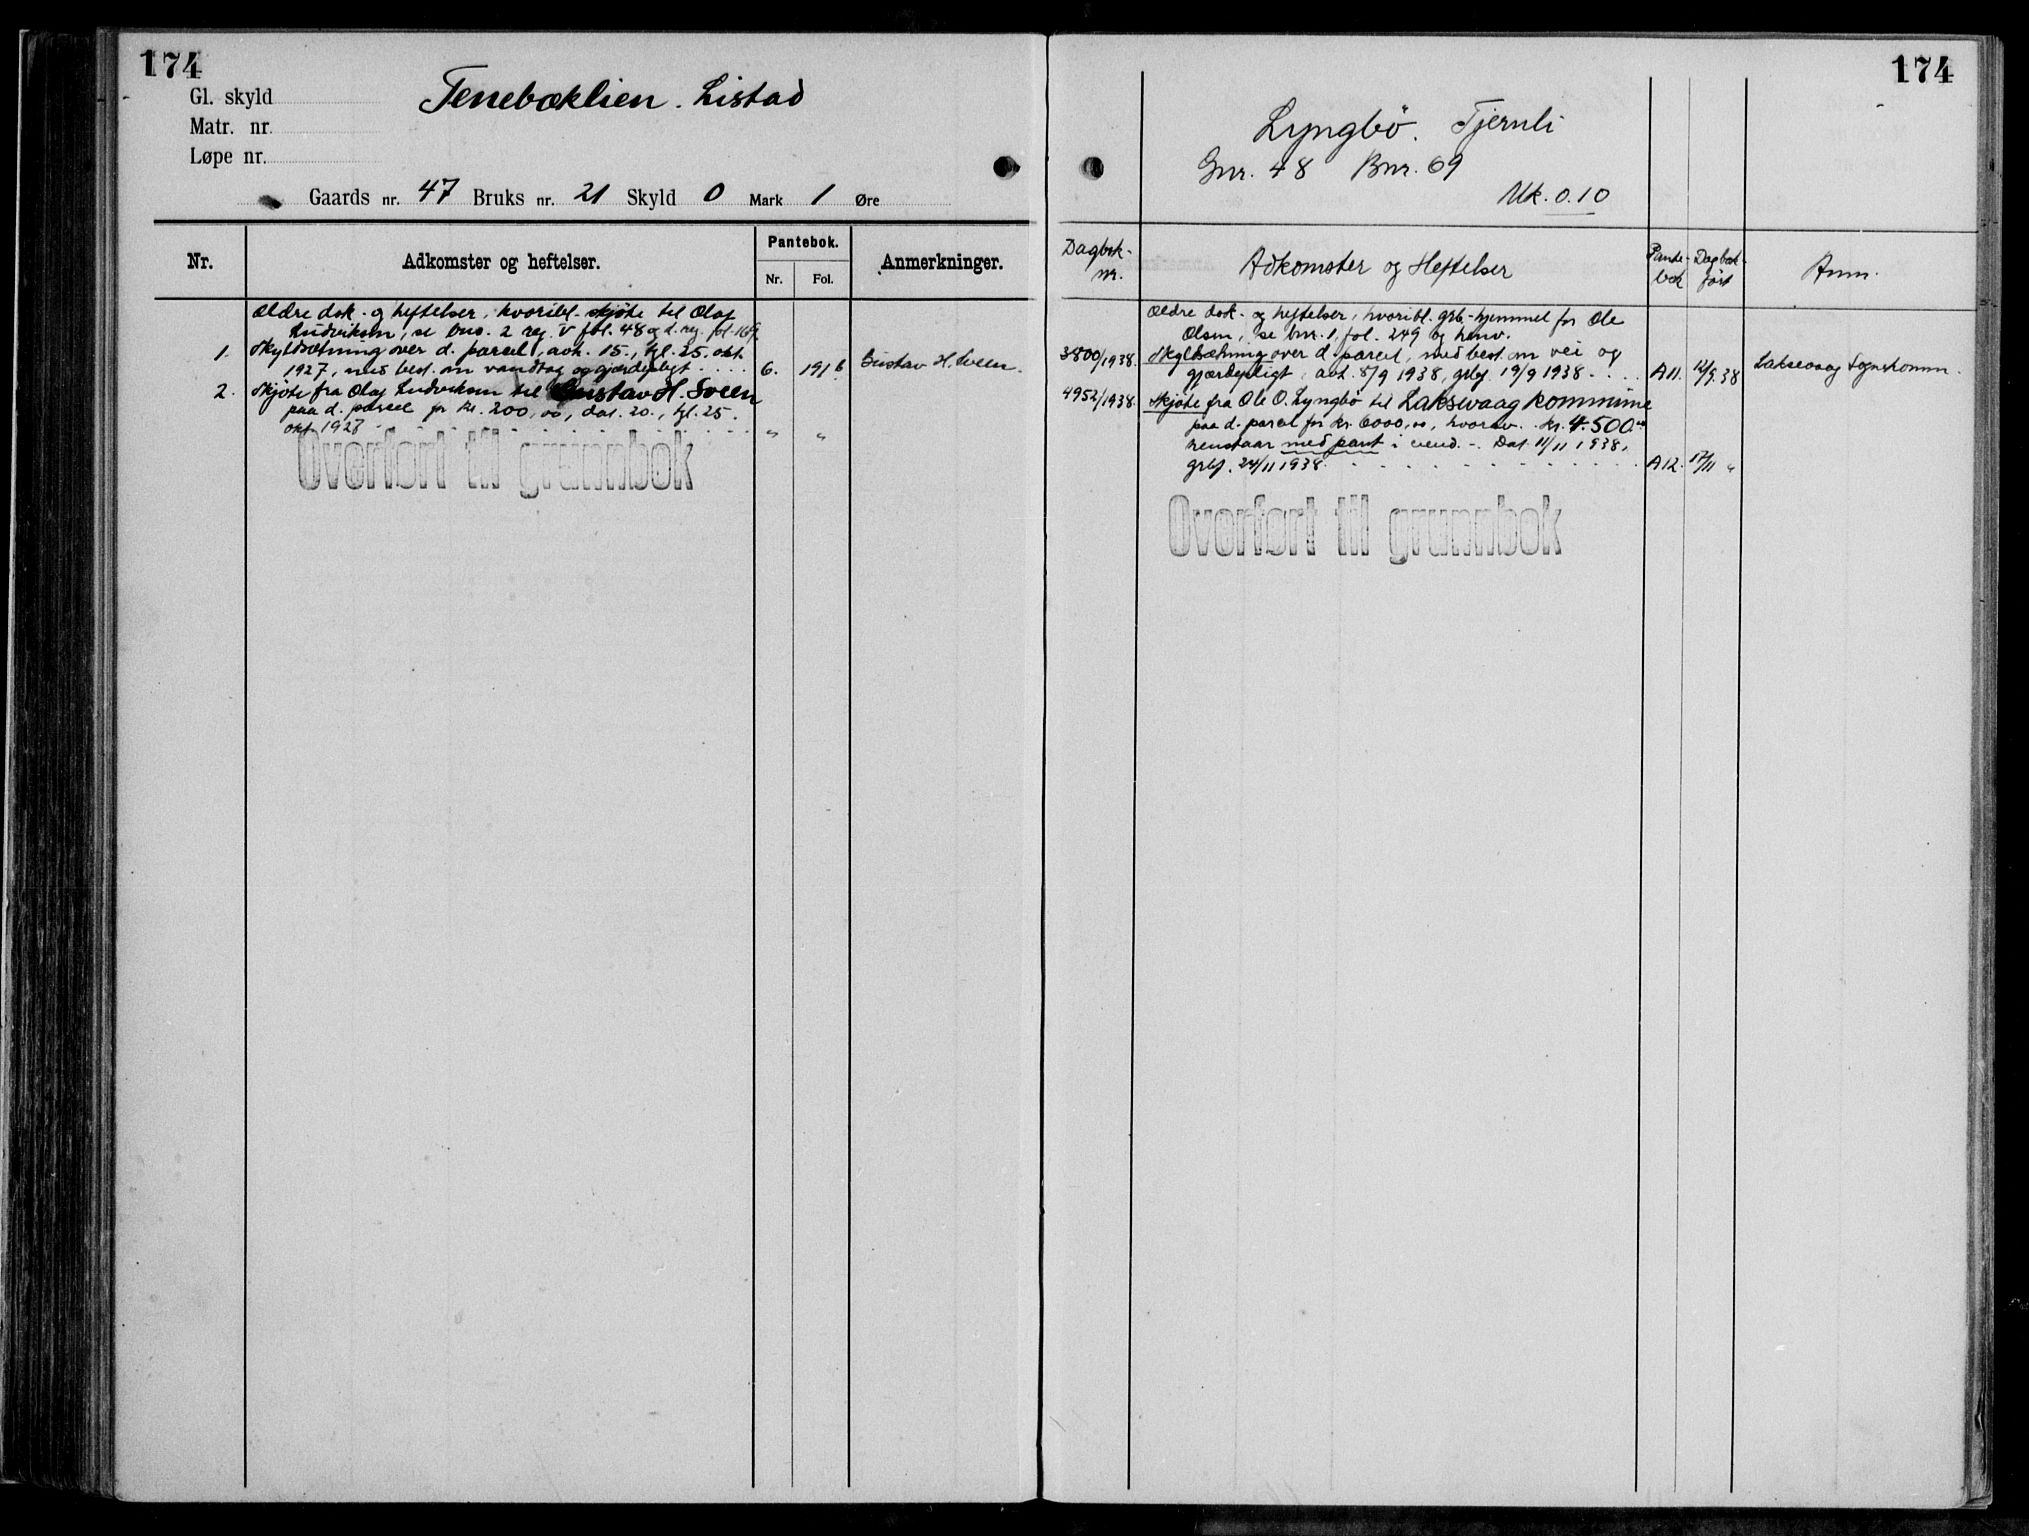 174
Gl. skyld
Matr. nr.
Løpe nr.
Tenebæklien. Listad
Gaards nr. 47 Bruks nr. 21 Skyld 0 Mark 1 Øre
Nr.
Adkomster og heftelser.
Pantebok.
Nr.
Fol.
Anmerkninger.
Ældre dok. og heftelser, hvoribl. skjøte til Olaf
Ludviksen, se bno. 2 reg. V fol. 48 og d. reg. fol. 169.
1. Skyldsætning over d. parcel, avh. 15., tgl. 25. okt.
1927, med best. om vandtag og gjærdepligt . . . . 6. 191 b Gustav H. Sveen.
2. Skjøte fra Olaf Ludviksen til Gustav H. Sveen
paa d. parcel for kr. 200,00, dat. 20., tgl. 25.
okt. 1927 . . . . " "
Overført til grunnbok
174
Lyngbö. Tjernli
Gnr. 48 Bnr. 69
Mk. 0.10
Dagbok-
nr.
Adkomster og Heftelser
Pante-
bok
Dagbok-
ført
Anm.
Ældre dok. og heftelser, hvoribl. grb.-hjemmel for Ole
Olsen, se bnr. 1, fol. 249 og henv.
3800/1938. Skyldsætning over d. parcel, med best. om vei og
gjærdepligt, avh. 8/9 1938, grbf. 19/9 1938 . . . A11. 12/9.38 Laksevaag Sognekomm.
4952/1938. Skjøte fra Ole O. Lyngbö til Laksevaag kommune
paa d. parcel for kr. 6000,00, hvorav kr. 4.500.00
henstaar med pant i eiend. - Dat. 11/11 1938,
grbf. 24/11 1938 . . . . A12. 17/11 "
Overført til grunnbok